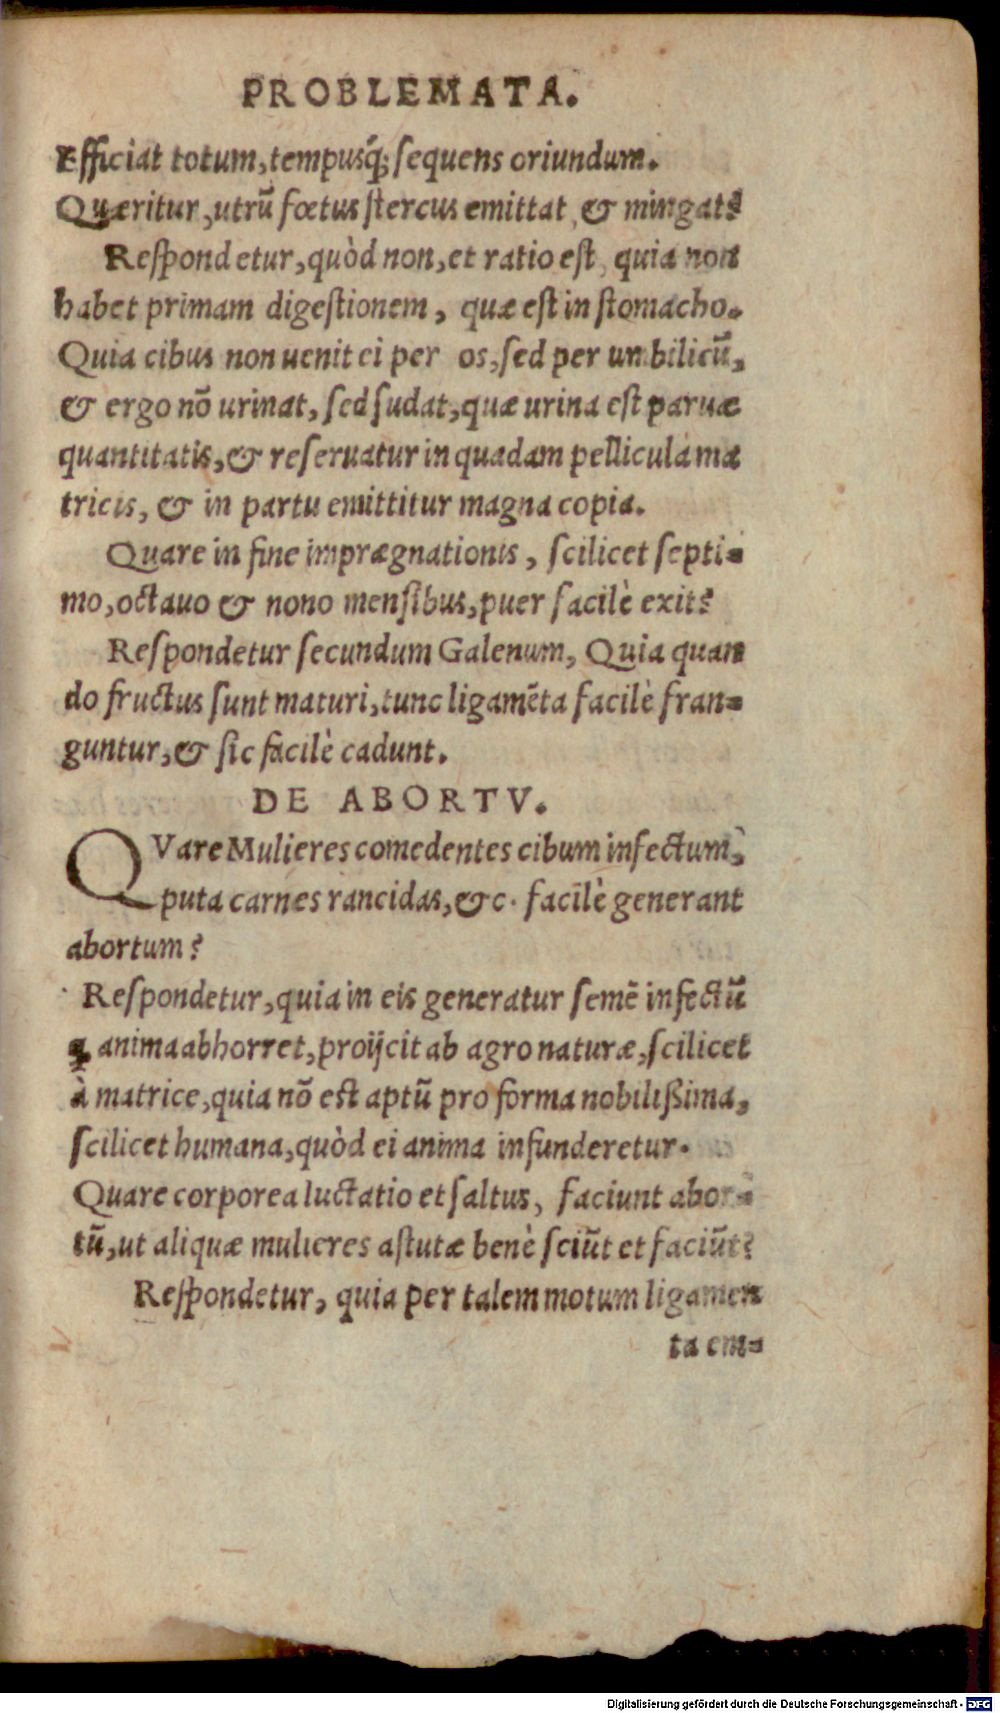 PROBLEMATA.
Efficiat totum, tempusq́; sequens oriundum.
Quæritur, utrũ fœtus stercus emittat, & mingat?
Respondetur, quòd non, et ratio est, quia non
habet primam digestionem, quæ est in stomacho.
Quia cibus non uenit ei per os, sed per umbilicũ,
& ergo nõ urinat, sed sudat, quæ urina est paruæ
quantitatis, & reseruatur in quadam pellicula ma
tricis, & in partu emittitur magna copia.
Quare in fine imprægnationis, scilicet septi-
mo, octauo & nono mensibus, puer facilè exit?
Respondetur secundum Galenum, Quia quan
do fructus sunt maturi, tunc ligamẽta facilè fran-
guntur, & sic facilè cadunt.
DE ABORTV.
QVare Mulieres comedentes cibum infectum,
puta carnes rancidas, &c. facilè generant
abortum?
Respondetur, quia in eis generatur semẽ infectũ
ꝙ anima abhorret, proijcit ab agro naturæ, scilicet
à matrice, quia nõ est aptũ pro forma nobilißima,
scilicet humana, quòd ei anima infunderetur.
Quare corporea luctatio et saltus, faciunt abor-
tũ, ut aliquæ mulieres astutæ benè sciũt et faciũt?
Respondetur, quia per talem motum ligamen
ta em-
Digitalisierung gefördert durch die Deutsche Forschungsgemeinschaft - DFG